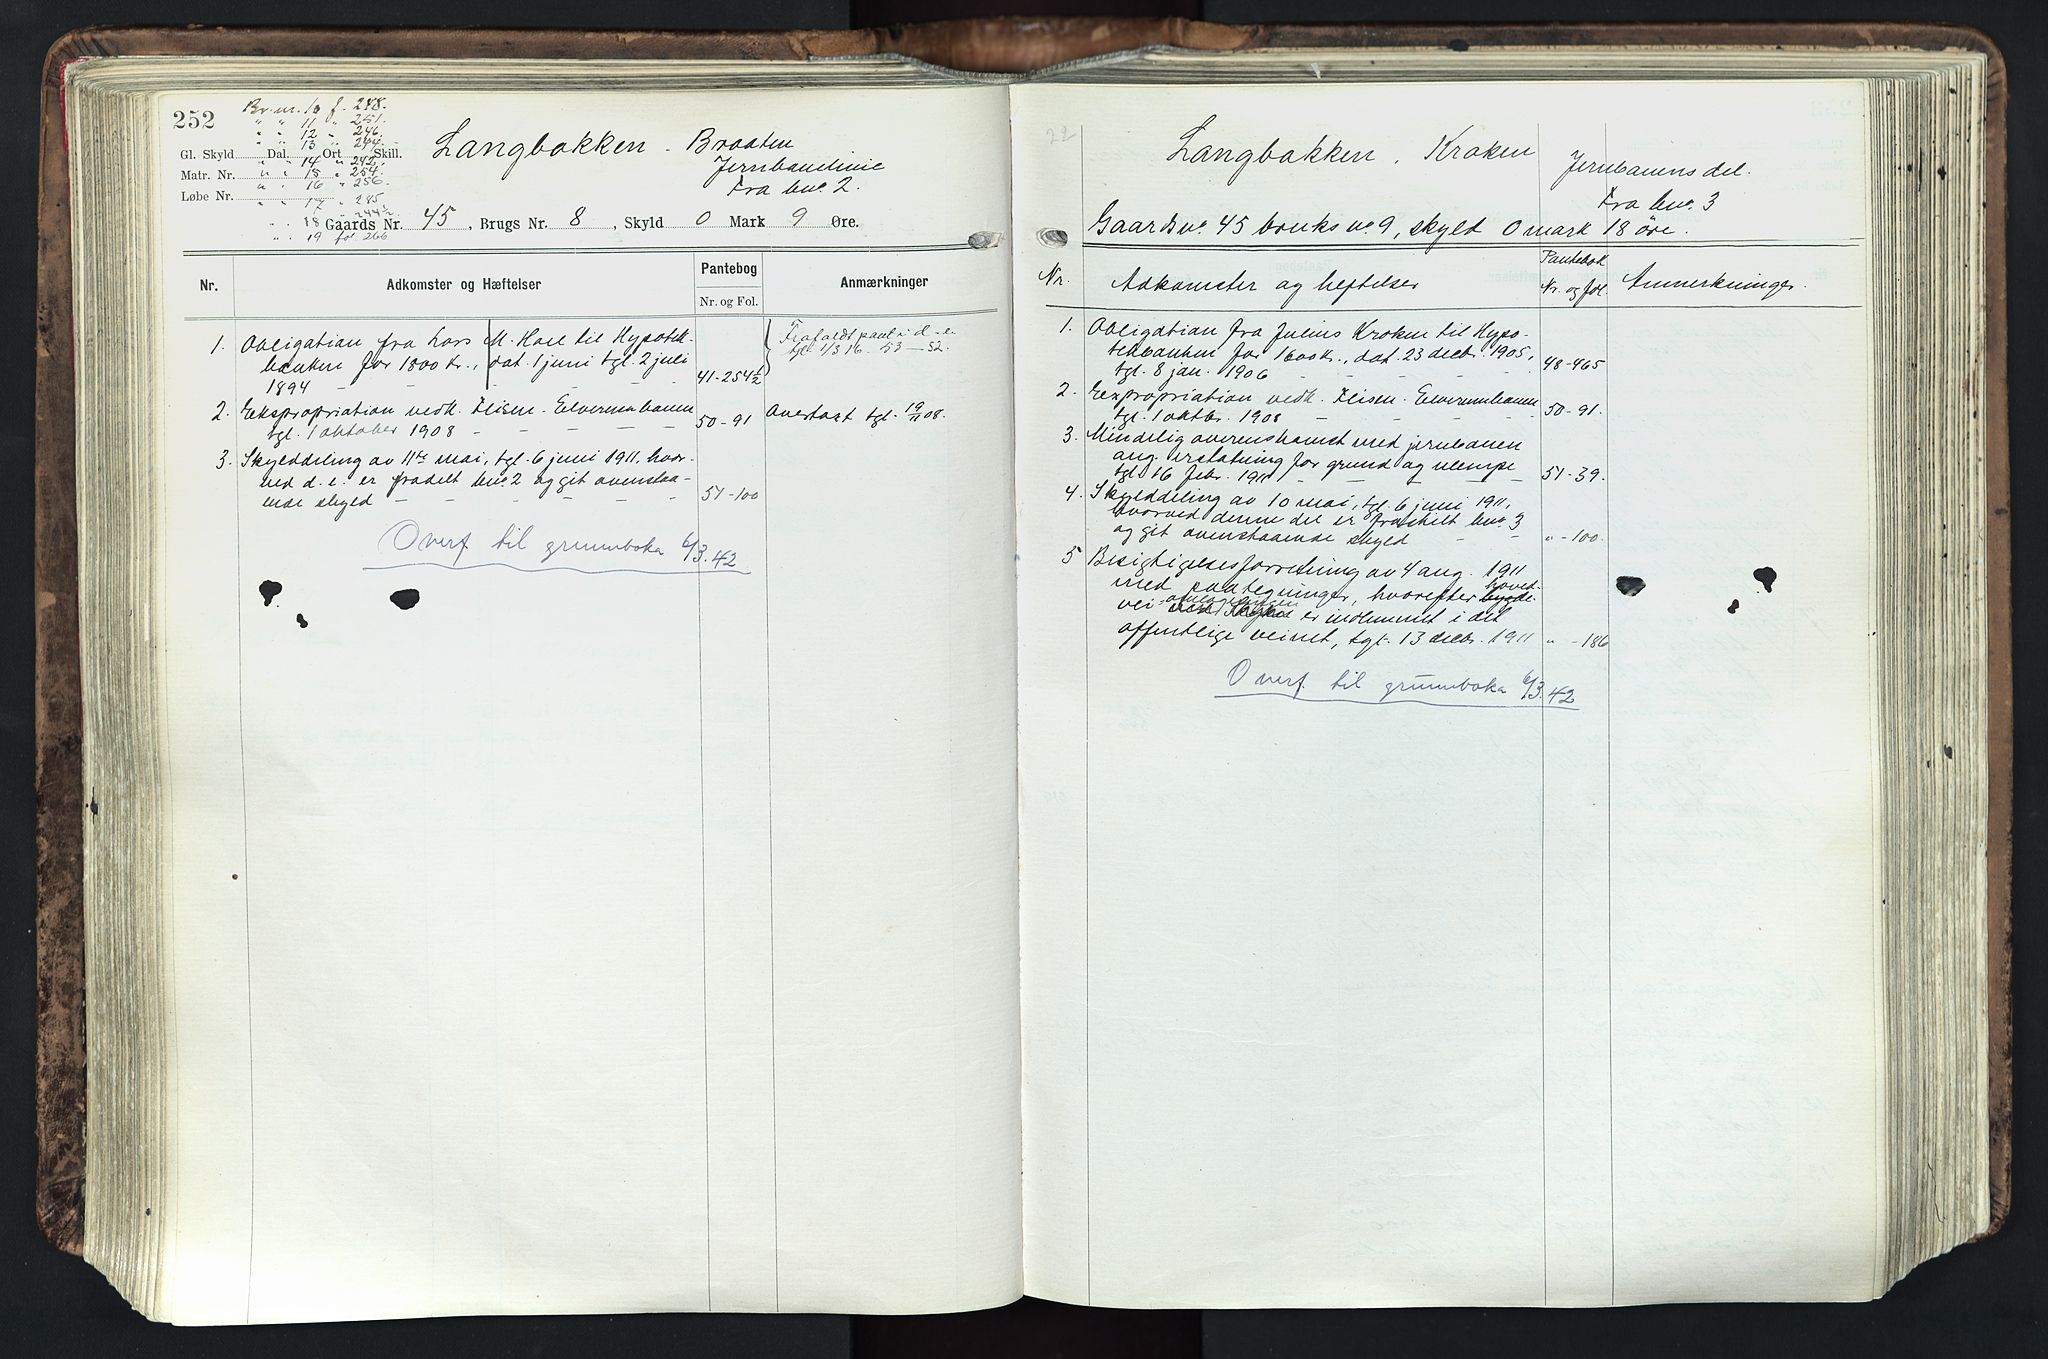 252
Br. nr. 10 f. 248.
" " 11 " 251.
" " 12 " 246.
" " 13 " 244.
" " 14 " 242.
" " 15 " 254.
" " 16 " 256.
" " 17 " 285
" " 18 " 244½.
" " 19 fol. 266
Gl. Skyld Dal. Ort Skill.
Matr. Nr.
Løbe Nr.
Langbakken. Braaten
Jernbanelinie
Fra bno. 2.
Gaards Nr. 45, Brugs Nr. 8, Skyld 0 Mark 9 Øre.
Nr. Adkomster og Hæftelser Pantebog Anmærkninger
Nr. og Fol.
1. Obligation fra Lars M. Hoel til Hypotek-
banken for 1800 kr., dat. 1 juni tgl. 2 juli
1894 - - - 41-254½
Frafaldt pant i d. e.
tgl. 1/3 16. 53 - 52.
2. Ekspropriation vedk. Flisen-Elverumbanen
tgl. 1 oktober 1908 - - - 50-91 Avertert tgl. 19/11 08.
3. Skylddeling av 11te mai, tgl. 6 juni 1911, hvor-
ved d. e. er fradelt bno. 2 og git ovenstaa-
ende skyld - - - 51-100
Overf. til grunnboka 6/3.42
22
Langbakken, Kroken
Jernbanens del.
Fra bno. 3
Gaardsno. 45 bruksno. 9, skyld 0 mark 18 øre.
Nr. Adkomster og heftelser Pantebok Anmerkninger.
Nr. og fol.
1. Obligation fra Julius Kroken til Hypo-
tekbanken for 1600 kr., dat. 23 decbr. 1905,
tgl. 8 jan. 1906 - - - 48-465
2. Expropriation vedk. Flisen-Elverumbanen
tgl. 1 oktbr. 1908 - - - 50-91.
3. Mindelig overenskomst med jernbanen
ang. erstatning for grund og ulempe
tgl. 16 febr. 1911 - - - 51-39.
4. Skylddeling av 10 mai, tgl. 6 juni 1911,
hvorved denne del er fraskilt bno. 3
og git ovenstaaende skyld - - " -100.
5 Besigtigelsesforretning av 4 aug. 1911
med paategninger, hvorefter bygde- hoved-
vei er indlemmet i det
offentlige veinet, tgl. 13 decbr. 1911 " -186
Overf. til grunnboka 6/3.42